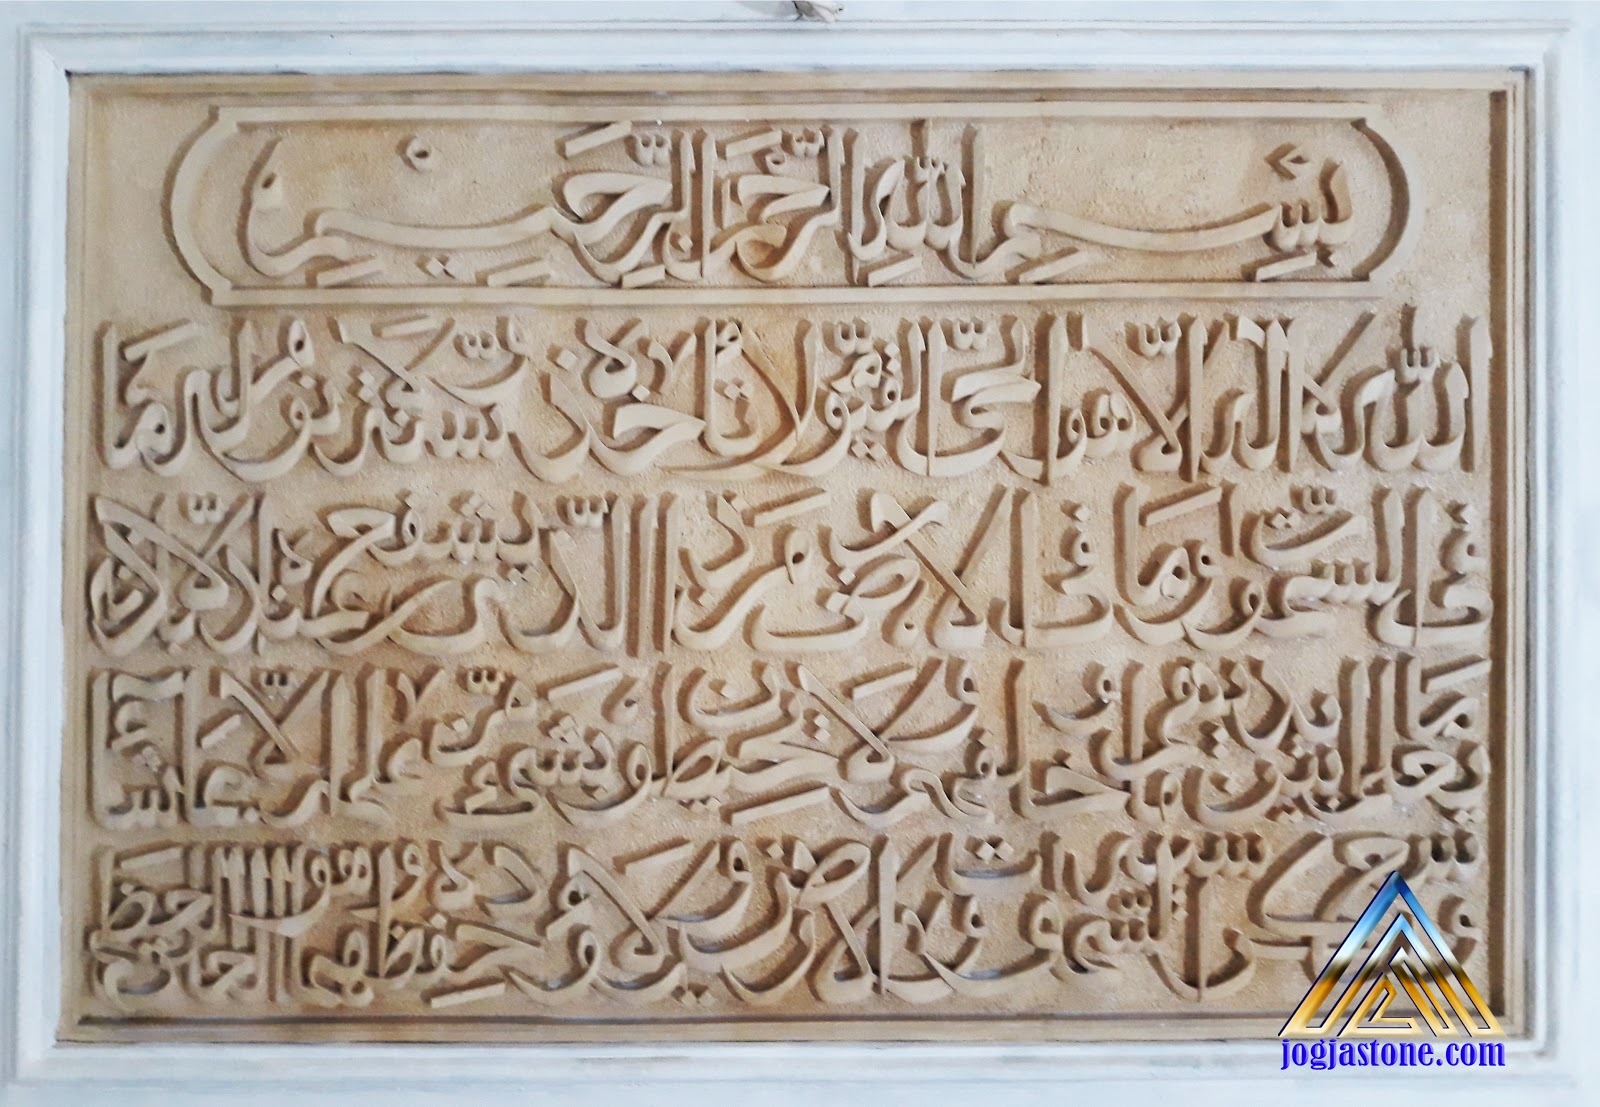 بِسْمِ اللّٰهِ الرَّحْمٰنِ الرَّحِيْمِ
اللّٰه لا اله الا هو الحي القيوم لا تأخذه سنة ولا نوم له ما
في السموت وما في الارض من ذا الذي يشفع عنده الا باذنه
يعلم ما بين ايديهم وما خلفهم ولا يحيطون بشيء من علمه الا بما شاء
وسع كرسيه السموت والارض ولا يؤده حفظهما وهو العلي العظيم
jogjastone.com